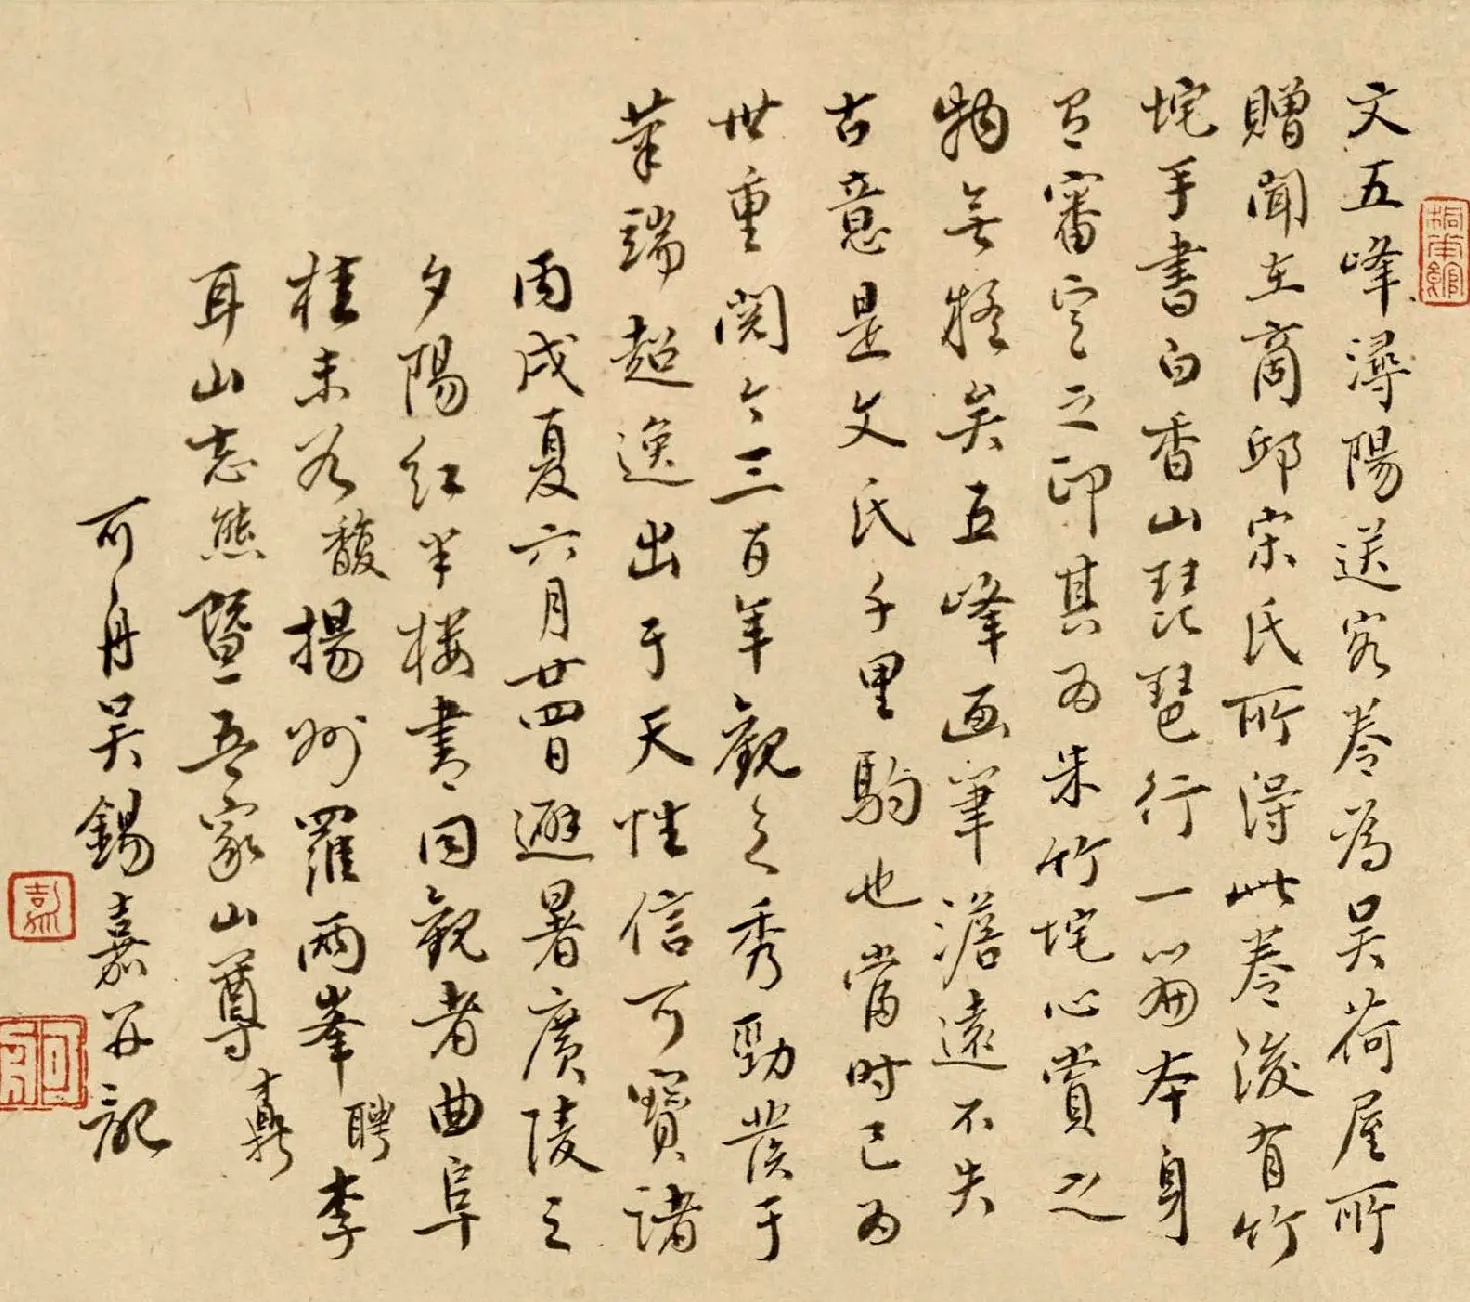 文五峰潯陽送客卷為吳荷屋所
贈聞在商邱宋氏所得此卷後有竹
垞手書白香山琵琶行一篇本身
有審定之印其為朱竹垞心賞之
物無疑矣五峰画筆澹遠不失
古意是文氏千里駒也當時已為
世重閱今三百年觀之秀勁發于
筆端超逸出于天性信可寶諸
丙戌夏六月廿四日避暑廣陵之
夕陽紅半樓書同觀者曲阜
桂未谷馥揚州羅兩峯聘李
耳山志熊暨吾家山尊鼒
可舟吳錫嘉并記